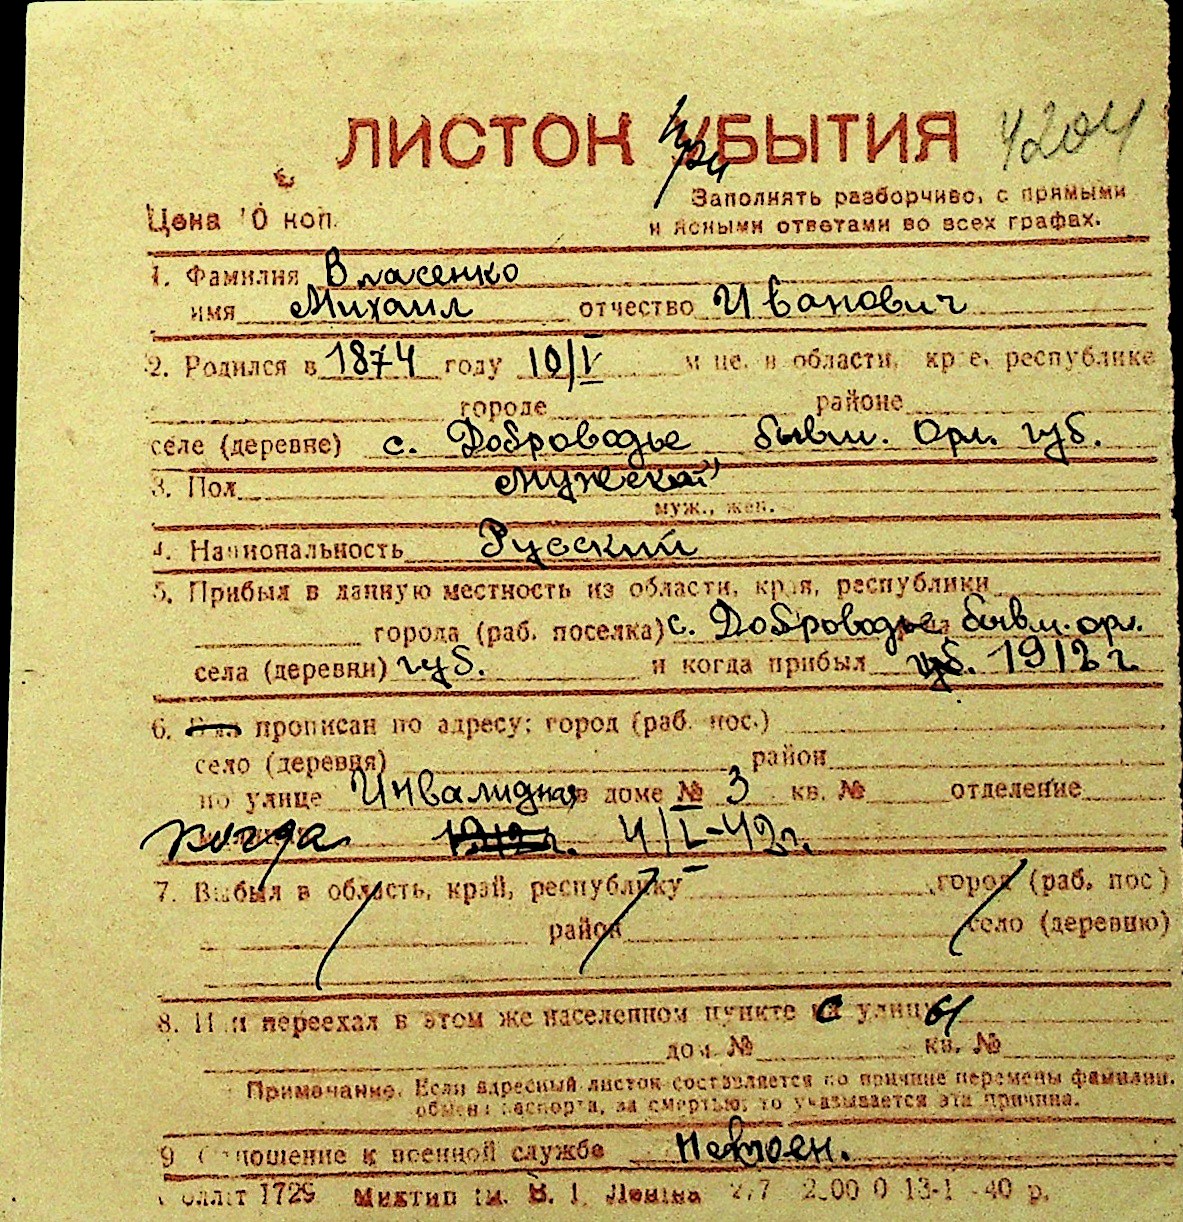 ЛИСТОК УБЫТИЯ при 4204
Цена 10 коп. Заполнять разборчиво, с прямыми
и ясными ответами во всех графах.
1. Фамилия Власенко
имя Михаил отчество Иванович
2. Родился в 1874 году 10/V м-це, в области, крае, республике
городе районе
селе (деревне) с. Доброводье бывш. Орл. губ.
3. Пол Мужской
муж., жен.
4. Национальность Русский
5. Прибыл в данную местность из области, края, республики
города (раб. поселка) с. Доброводье бывш. орл.
села (деревни) губ. и когда прибыл губ. 1912 г.
6. Был прописан по адресу: город (раб. пос.)
село (деревня) район
по улице Инвалидная в доме № 3 кв. № отделение
когда 1912 г. 4/I-42 г.
7. Выбыл в область, край, республику город (раб. пос)
район село (деревню)
8. Или переехал в этом же населенном пункте с улицы
дом. № кв. №
Примечание. Если адресный листок составляется по причине перемены фамилии,
обмена паспорта, за смертью, то указывается эта причина.
9 Отношение к военной службе невоен.
1729 им. В. И. Ленина